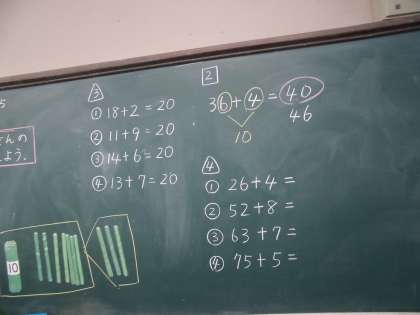 5
さんの
よう。
3
① 18+2=20
② 11+9=20
③ 14+6=20
④ 13+7=20
10
2
36+4=40
46
10
4
① 26+4=
② 52+8=
③ 63+7=
④ 75+5=